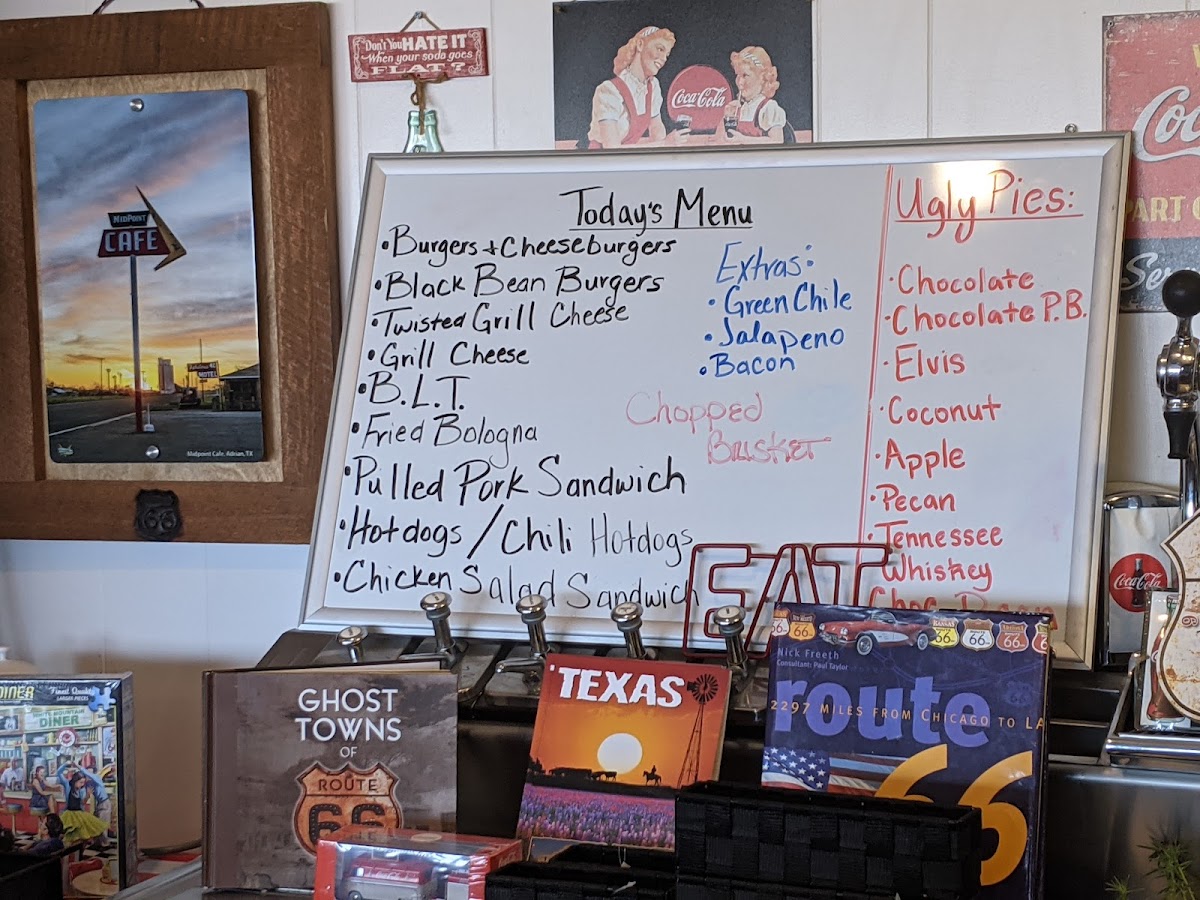 Don't You HATE IT
When your soda goes
FLAT?
Coca-Cola
MIDPOINT
CAFE
MOTEL
Midpoint Cafe, Adrian, TX
66
Today's Menu
• Burgers + Cheeseburgers
• Black Bean Burgers
• Twisted Grill Cheese
• Grill Cheese
• B.L.T.
• Fried Bologna
• Pulled Pork Sandwich
• Hotdogs / Chili Hotdogs
• Chicken Salad Sandwich
Extras:
• Green Chile
• Jalapeno
• Bacon
Chopped
Brisket
Ugly Pies:
• Chocolate
• Chocolate P.B.
• Elvis
• Coconut
• Apple
• Pecan
• Tennessee
Whiskey
Choc Pecan
EAT
Coca-Cola
DINER
DINER
GHOST
TOWNS
OF
ROUTE
66
TEXAS
66
KANSAS
66
66
Nick Freeth
Consultant: Paul Taylor
route
2297 MILES FROM CHICAGO TO LA
66